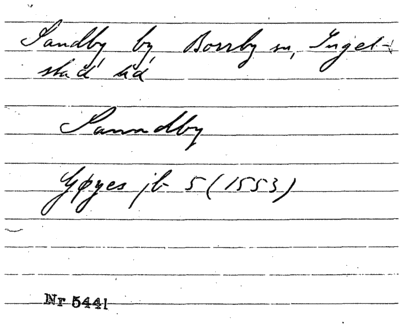 Sandby by Borrby sn, Ingel-
stad hd
Sanndby
Gøyes jb 5 (1553)
Nr 5441